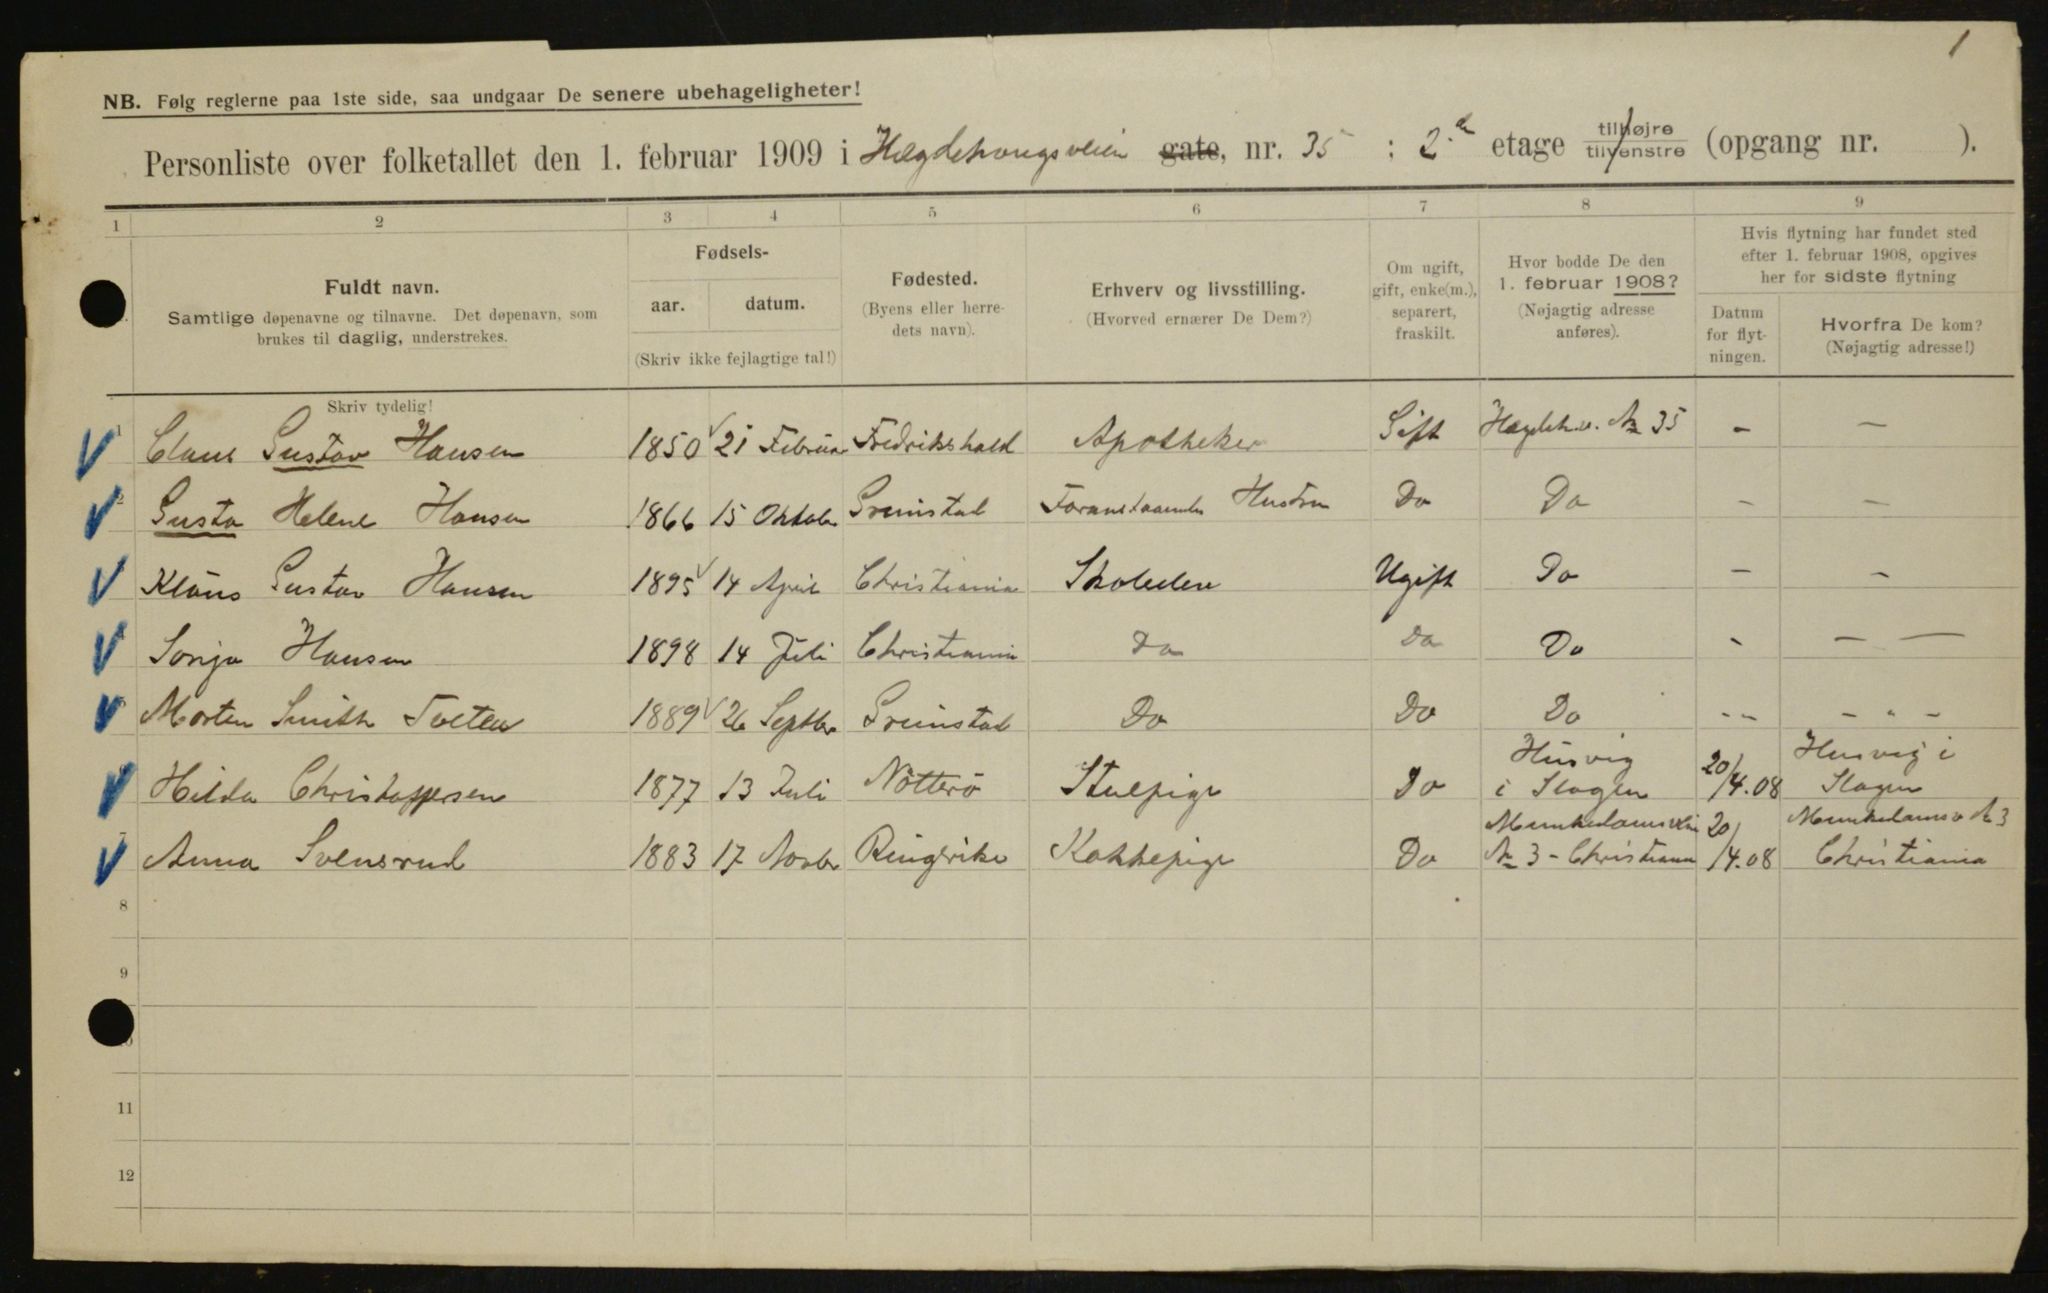 1
NB. Følg reglerne paa 1ste side, saa undgaar De senere ubehageligheter!
Personliste over folketallet den 1. februar 1909 i Hægdehougsveien gate, nr. 35 : 2.den etage tilhøjre tilvenstre (opgang nr. ).
1 2 3 4 5 6 7 8 9
Fuldt navn.
Samtlige døpenavne og tilnavne. Det døpenavn, som
brukes til daglig, understrekes.
Fødsels-
aar. datum.
(Skriv ikke fejlagtige tal!)
Fødested.
(Byens eller herre-
dets navn).
Erhverv og livsstilling.
(Hvorved ernærer De Dem?)
Om ugift,
gift, enke(m.),
separert,
fraskilt.
Hvor bodde De den
1. februar 1908?
(Nøjagtig adresse
anføres).
Hvis flytning har fundet sted
efter 1. februar 1908, opgives
her for sidste flytning
Datum
for flyt-
ningen.
Hvorfra De kom?
(Nøjagtig adresse!)
Skriv tydelig!
1 Claus Gustav Hansen 1850 21 Februar Fredrikshald Apotheker Gift Hægdeh.v. No 35 - -
2 Gusta Helene Hansen 1866 15 Oktober Grimstad Foranstaaendes Hustru Do Do - -
Klaus Gustav Hansen 1895 14 April Christiania Skoleelev Ugift Do - -
Sonja Hansen 1898 14 Juli Christiania Do Do Do - - -
Morten Smith Tveten 1889 26 Septbr Grimstad Do Do Do - - - " -
Hilda Christoffersen 1877 13 Juli Nötterö Stuepige Do Husvig i Slagen 20/4.08 Husvig i Slagen
7 Anna Svensrud 1883 17 Novbr Ringerike Kokkepige Do Munkedamsveien No 3 - Christiania 20/4.08 Munkedamsv No 3 Christiania
8
9
10
11
12